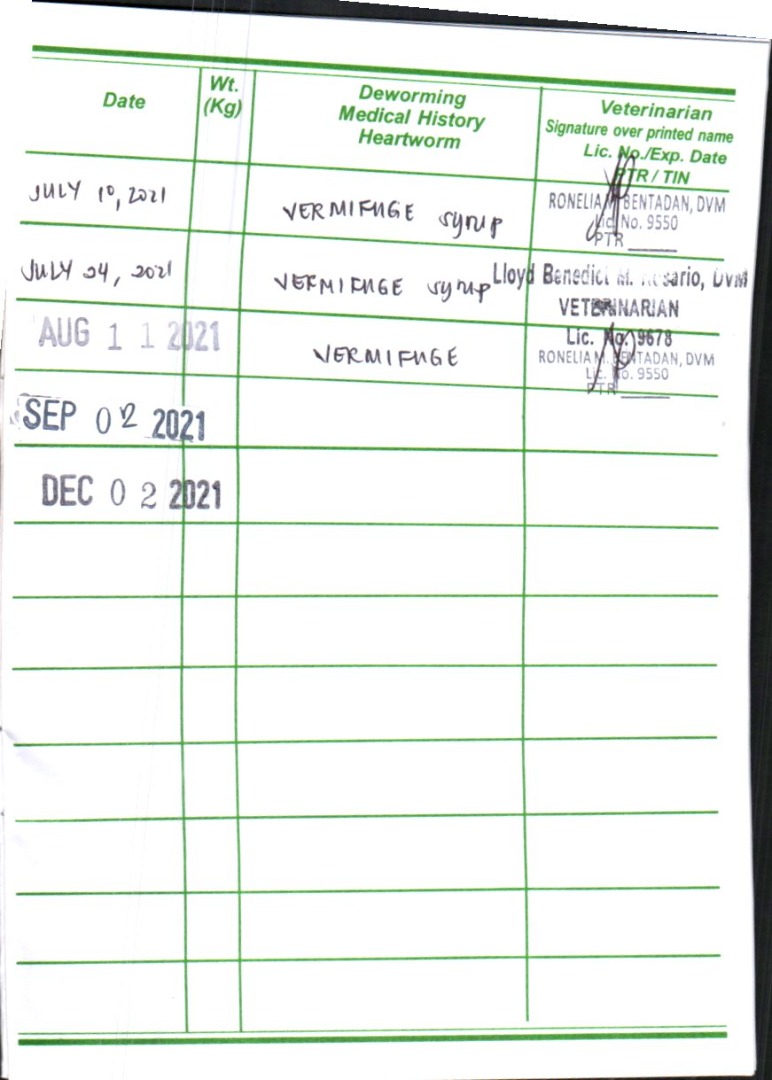 Date
Wt.
(Kg)
Deworming
Medical History
Heartworm
Veterinarian
Signature over printed name
Lic. No./Exp. Date
PTR / TIN
JULY 10, 2021
VERMIFUGE syrup
RONELIA M. BENTADAN, DVM
Lic No. 9550
PTR
JULY 24, 2021
VERMIFUGE syrup
Lloyd Benedict M. Rosario, DVM
VETERINARIAN
Lic. No. 9678
AUG 11 2021
VERMIFUGE
RONELIA M. BENTADAN, DVM
Lic. No. 9550
PTR
SEP 02 2021
DEC 02 2021